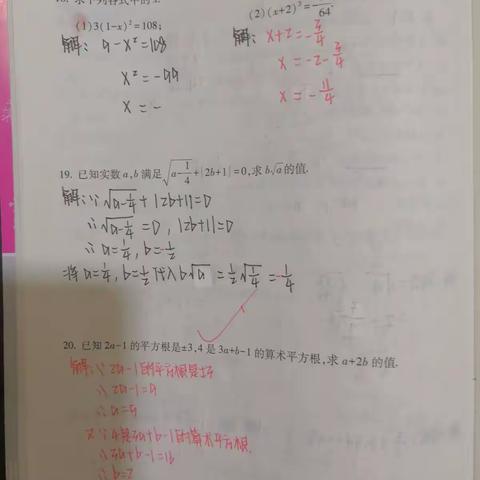 (1)3(1-x)²=108;
(2)(x+2)³=
64
解: 9-x²=108
x²=-99
x=-
解: x+2=-3/4
x=-2-3/4
x=-11/4
19. 已知实数 a,b 满足√(a-1/4)+|2b+1|=0,求 b√a 的值.
解:∵√(a-1/4)+|2b+1|=0
∴√(a-1/4)=0, |2b+1|=0
∴a=1/4, b=-1/2
将a=1/4, b=-1/2代入b√a=-1/2√(1/4)=-1/4
20. 已知 2a-1 的平方根是±3,4 是 3a+b-1 的算术平方根,求 a+2b 的值.
解:∵2a-1的平方根是±3
∴2a-1=9
∴a=5
又∵4是3a+b-1的算术平方根.
∴3a+b-1=16
∴b=2